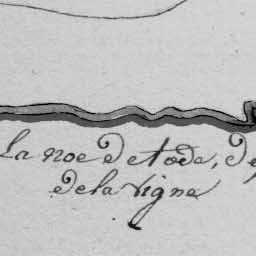 la noe de toda, de
de la vigne